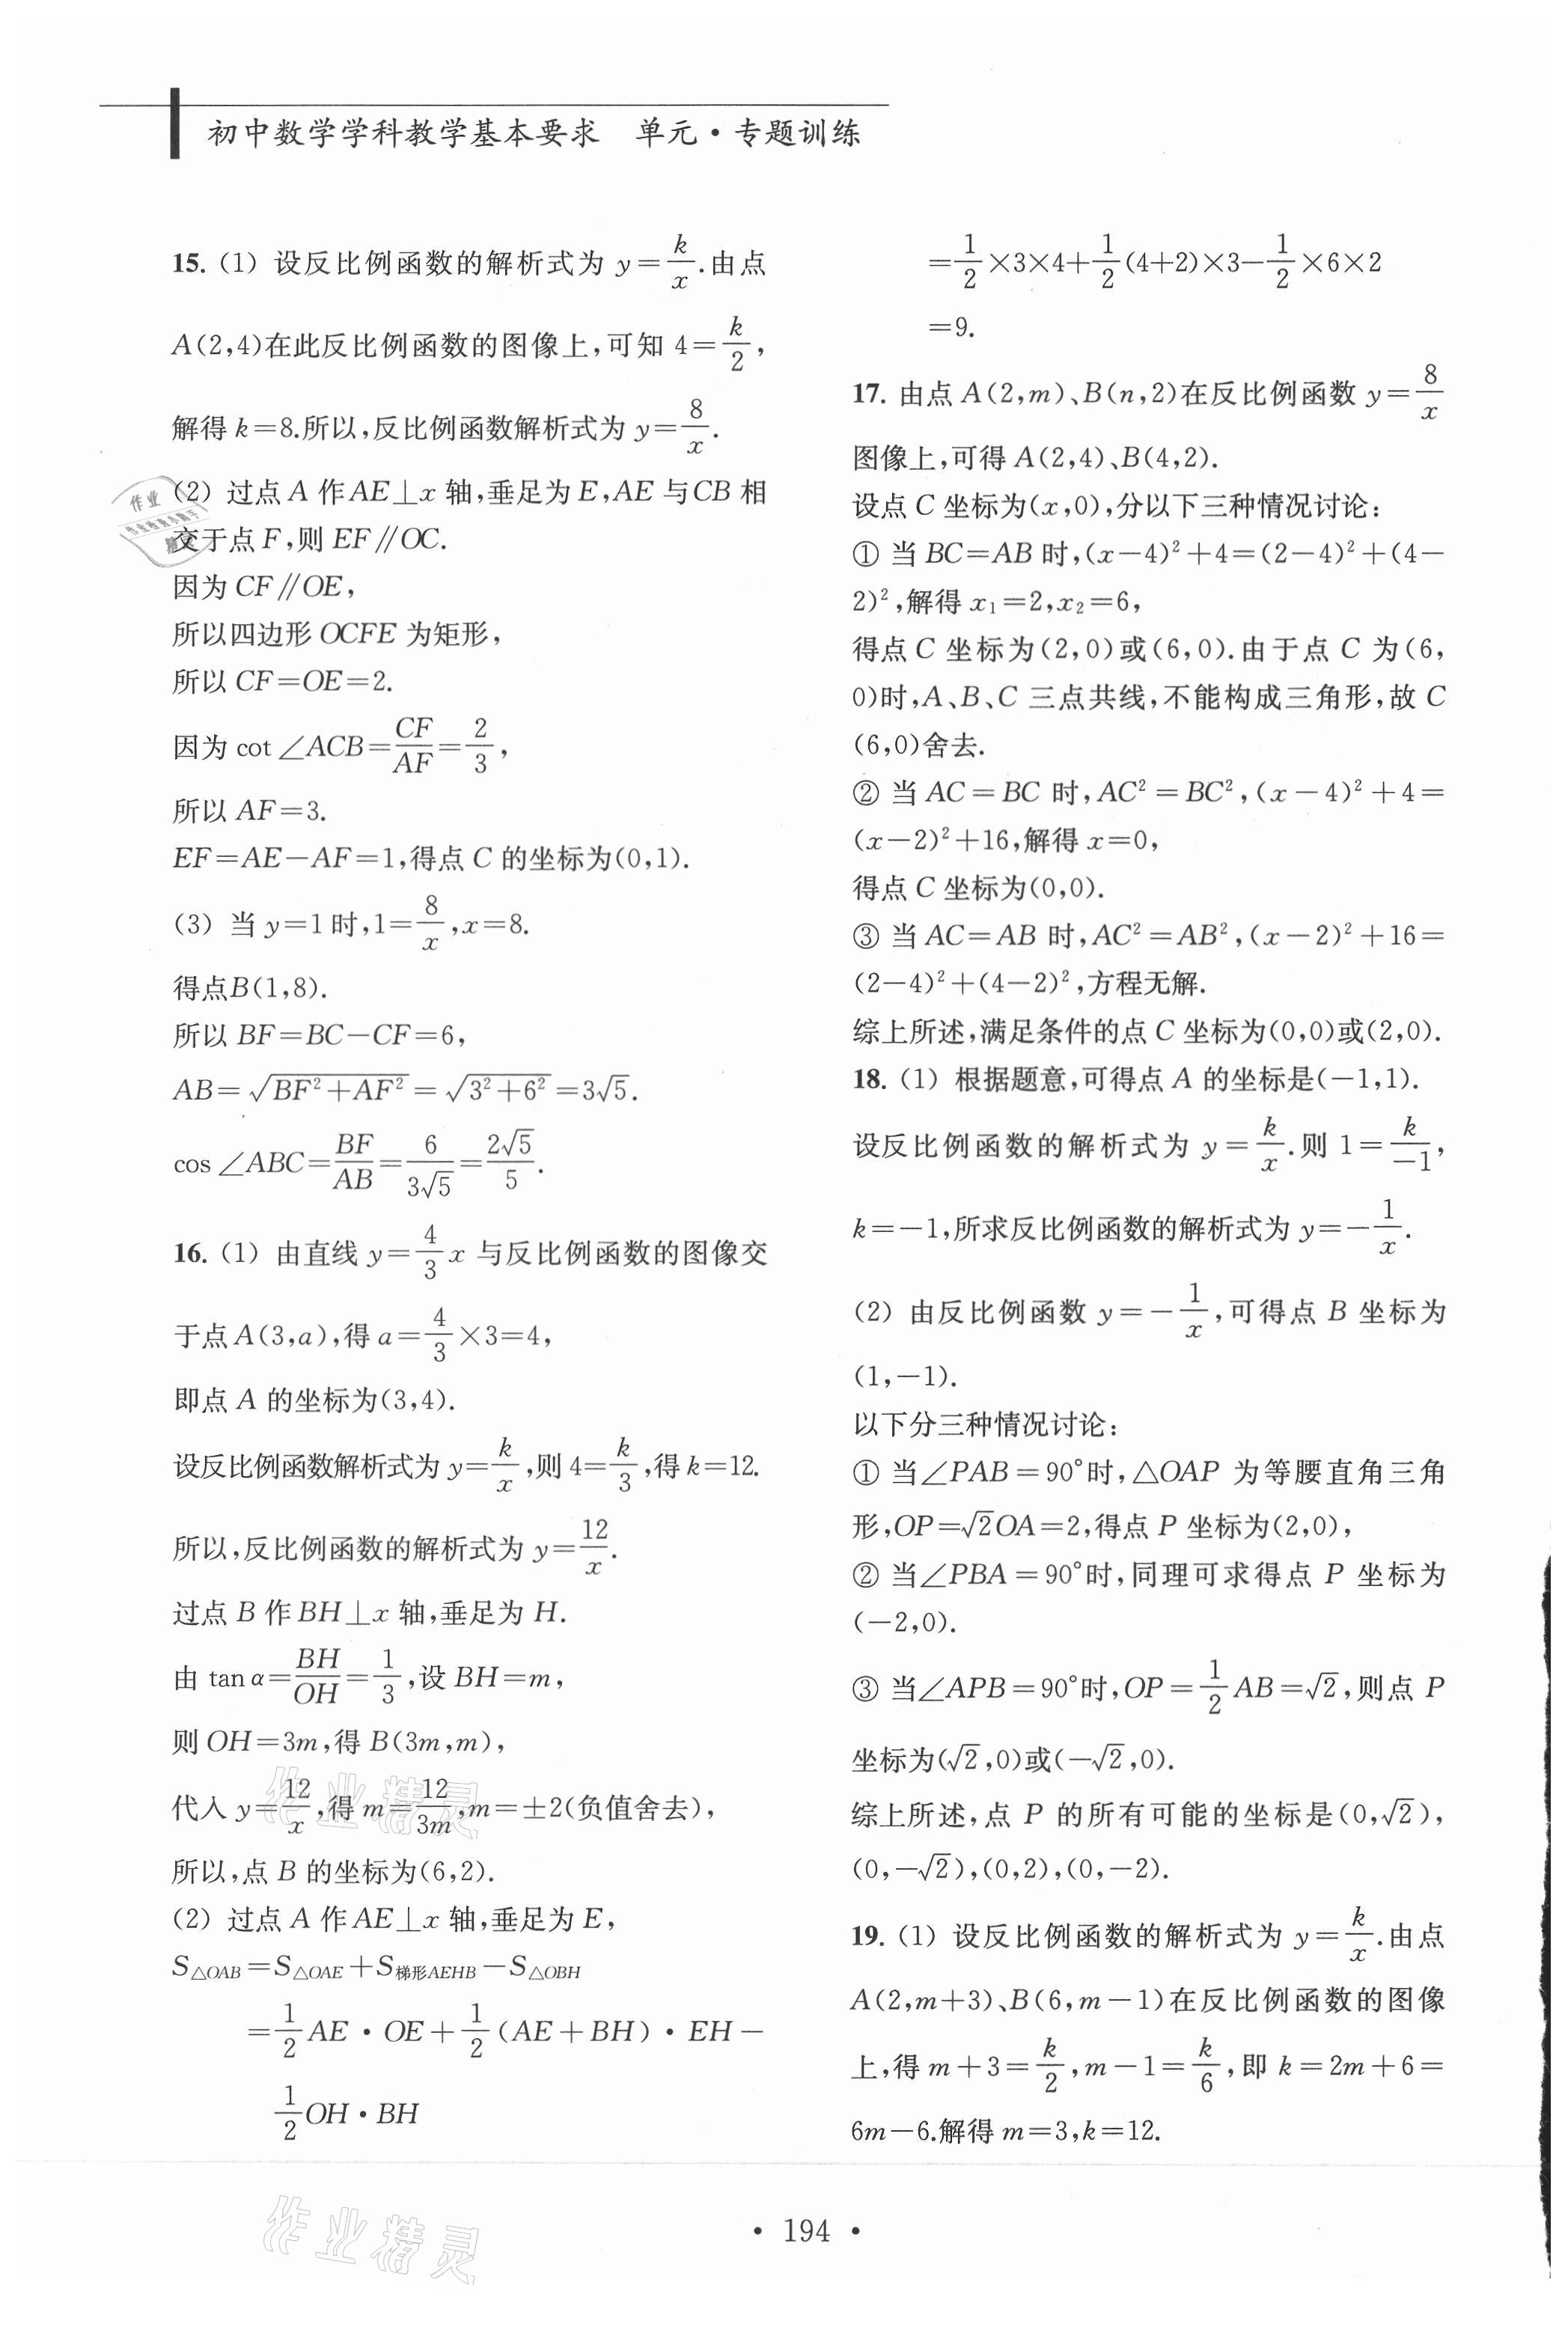 初中数学学科教学基本要求 单元·专题训练
15. (1) 设反比例函数的解析式为 y=k/x.由点
A(2,4)在此反比例函数的图像上,可知 4=k/2,
解得 k=8.所以,反比例函数解析式为 y=8/x.
(2) 过点 A 作 AE⊥x 轴,垂足为 E,AE 与 CB 相
交于点 F,则 EF∥OC.
因为 CF∥OE,
所以四边形 OCFE 为矩形,
所以 CF=OE=2.
因为 cot∠ACB=CF/AF=2/3,
所以 AF=3.
EF=AE-AF=1,得点 C 的坐标为(0,1).
(3) 当 y=1 时,1=8/x,x=8.
得点B(1,8).
所以 BF=BC-CF=6,
AB=√(BF²+AF²)=√(3²+6²)=3√5.
cos∠ABC=BF/AB=6/(3√5)=2√5/5.
16. (1) 由直线 y=4/3 x 与反比例函数的图像交
于点 A(3,a),得 a=4/3×3=4,
即点 A 的坐标为(3,4).
设反比例函数解析式为 y=k/x,则 4=k/3,得 k=12.
所以,反比例函数的解析式为 y=12/x.
过点 B 作 BH⊥x 轴,垂足为 H.
由 tan α=BH/OH=1/3,设 BH=m,
则 OH=3m,得 B(3m,m),
代入 y=12/x,得 m=12/3m,m=±2(负值舍去),
所以,点 B 的坐标为(6,2).
(2) 过点 A 作 AE⊥x 轴,垂足为 E,
S△OAB=S△OAE+S梯形AEHB-S△OBH
=1/2 AE·OE+1/2(AE+BH)·EH-
1/2 OH·BH
=1/2×3×4+1/2(4+2)×3-1/2×6×2
=9.
17. 由点 A(2,m)、B(n,2)在反比例函数 y=8/x
图像上,可得 A(2,4)、B(4,2).
设点 C 坐标为(x,0),分以下三种情况讨论:
① 当 BC=AB 时,(x-4)²+4=(2-4)²+(4-
2)²,解得 x₁=2,x₂=6,
得点 C 坐标为(2,0)或(6,0).由于点 C 为(6,
0)时,A、B、C 三点共线,不能构成三角形,故 C
(6,0)舍去.
② 当 AC=BC 时,AC²=BC²,(x-4)²+4=
(x-2)²+16,解得 x=0,
得点 C 坐标为(0,0).
③ 当 AC=AB 时,AC²=AB²,(x-2)²+16=
(2-4)²+(4-2)²,方程无解.
综上所述,满足条件的点 C 坐标为(0,0)或(2,0).
18. (1) 根据题意,可得点 A 的坐标是(-1,1).
设反比例函数的解析式为 y=k/x.则 1=k/-1,
k=-1,所求反比例函数的解析式为 y=-1/x.
(2) 由反比例函数 y=-1/x,可得点 B 坐标为
(1,-1).
以下分三种情况讨论:
① 当∠PAB=90°时,△OAP 为等腰直角三角
形,OP=√2OA=2,得点 P 坐标为(2,0),
② 当∠PBA=90°时,同理可求得点 P 坐标为
(-2,0).
③ 当∠APB=90°时,OP=1/2 AB=√2,则点 P
坐标为(√2,0)或(-√2,0).
综上所述,点 P 的所有可能的坐标是(0,√2),
(0,-√2),(0,2),(0,-2).
19. (1) 设反比例函数的解析式为 y=k/x.由点
A(2,m+3)、B(6,m-1)在反比例函数的图像
上,得 m+3=k/2,m-1=k/6,即 k=2m+6=
6m-6.解得 m=3,k=12.
作业精灵
作业精灵
· 194 ·